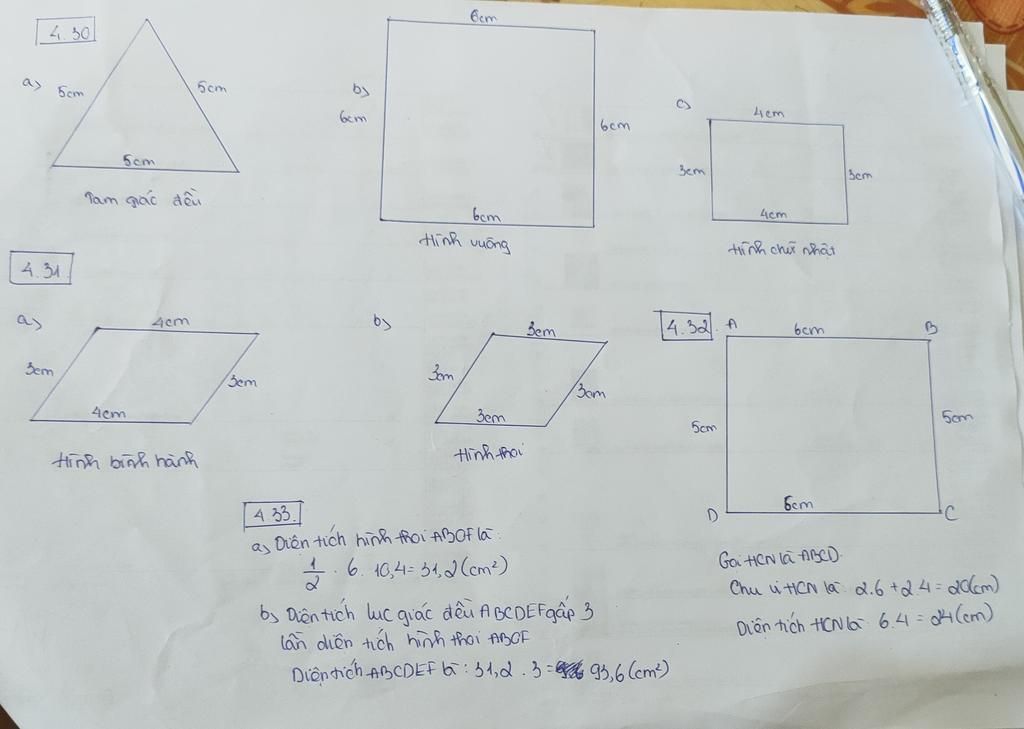 4.30
a)
5cm
5cm
5cm
Tam giác đều
b)
6cm
6cm
6cm
6cm
Hình vuông
c)
4cm
3cm
3cm
4cm
Hình chữ nhật
4.31
a)
4cm
3cm
3cm
4cm
Hình bình hành
b)
3cm
3cm
3cm
3cm
Hình thoi
4.32
A
6cm
B
5cm
5cm
D
6cm
C
Gọi HCN là ABCD.
Chu vi HCN là: 2.6 + 2.4 = 20(cm)
Diện tích HCN là: 6.4 = 24(cm)
4.33.
a) Diện tích hình thoi ABOF là:
1/2 . 6. 10,4 = 31,2(cm²)
b) Diện tích lục giác đều ABCDEF gấp 3
lần diện tích hình thoi ABOF
Diện tích ABCDEF là: 31,2 . 3 = 93,6(cm²)